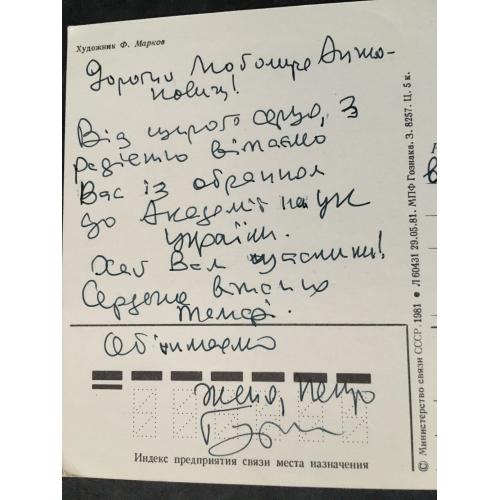 Художник Ф. Марков
Дорогий Любомире Анто-
нович!
Від щирого серця, з
радістю вітаємо
Вас із обранням
до Академії наук
України.
Хай Вам щастить!
Сердечно вітаємо
Обнімаємо
Женя, Петро
Индекс предприятия связи места назначения
© Министерство связи СССР, 1981 • Л 60431 29.05.81. МПФ Гознака. З. 8257. Ц. 5 к.